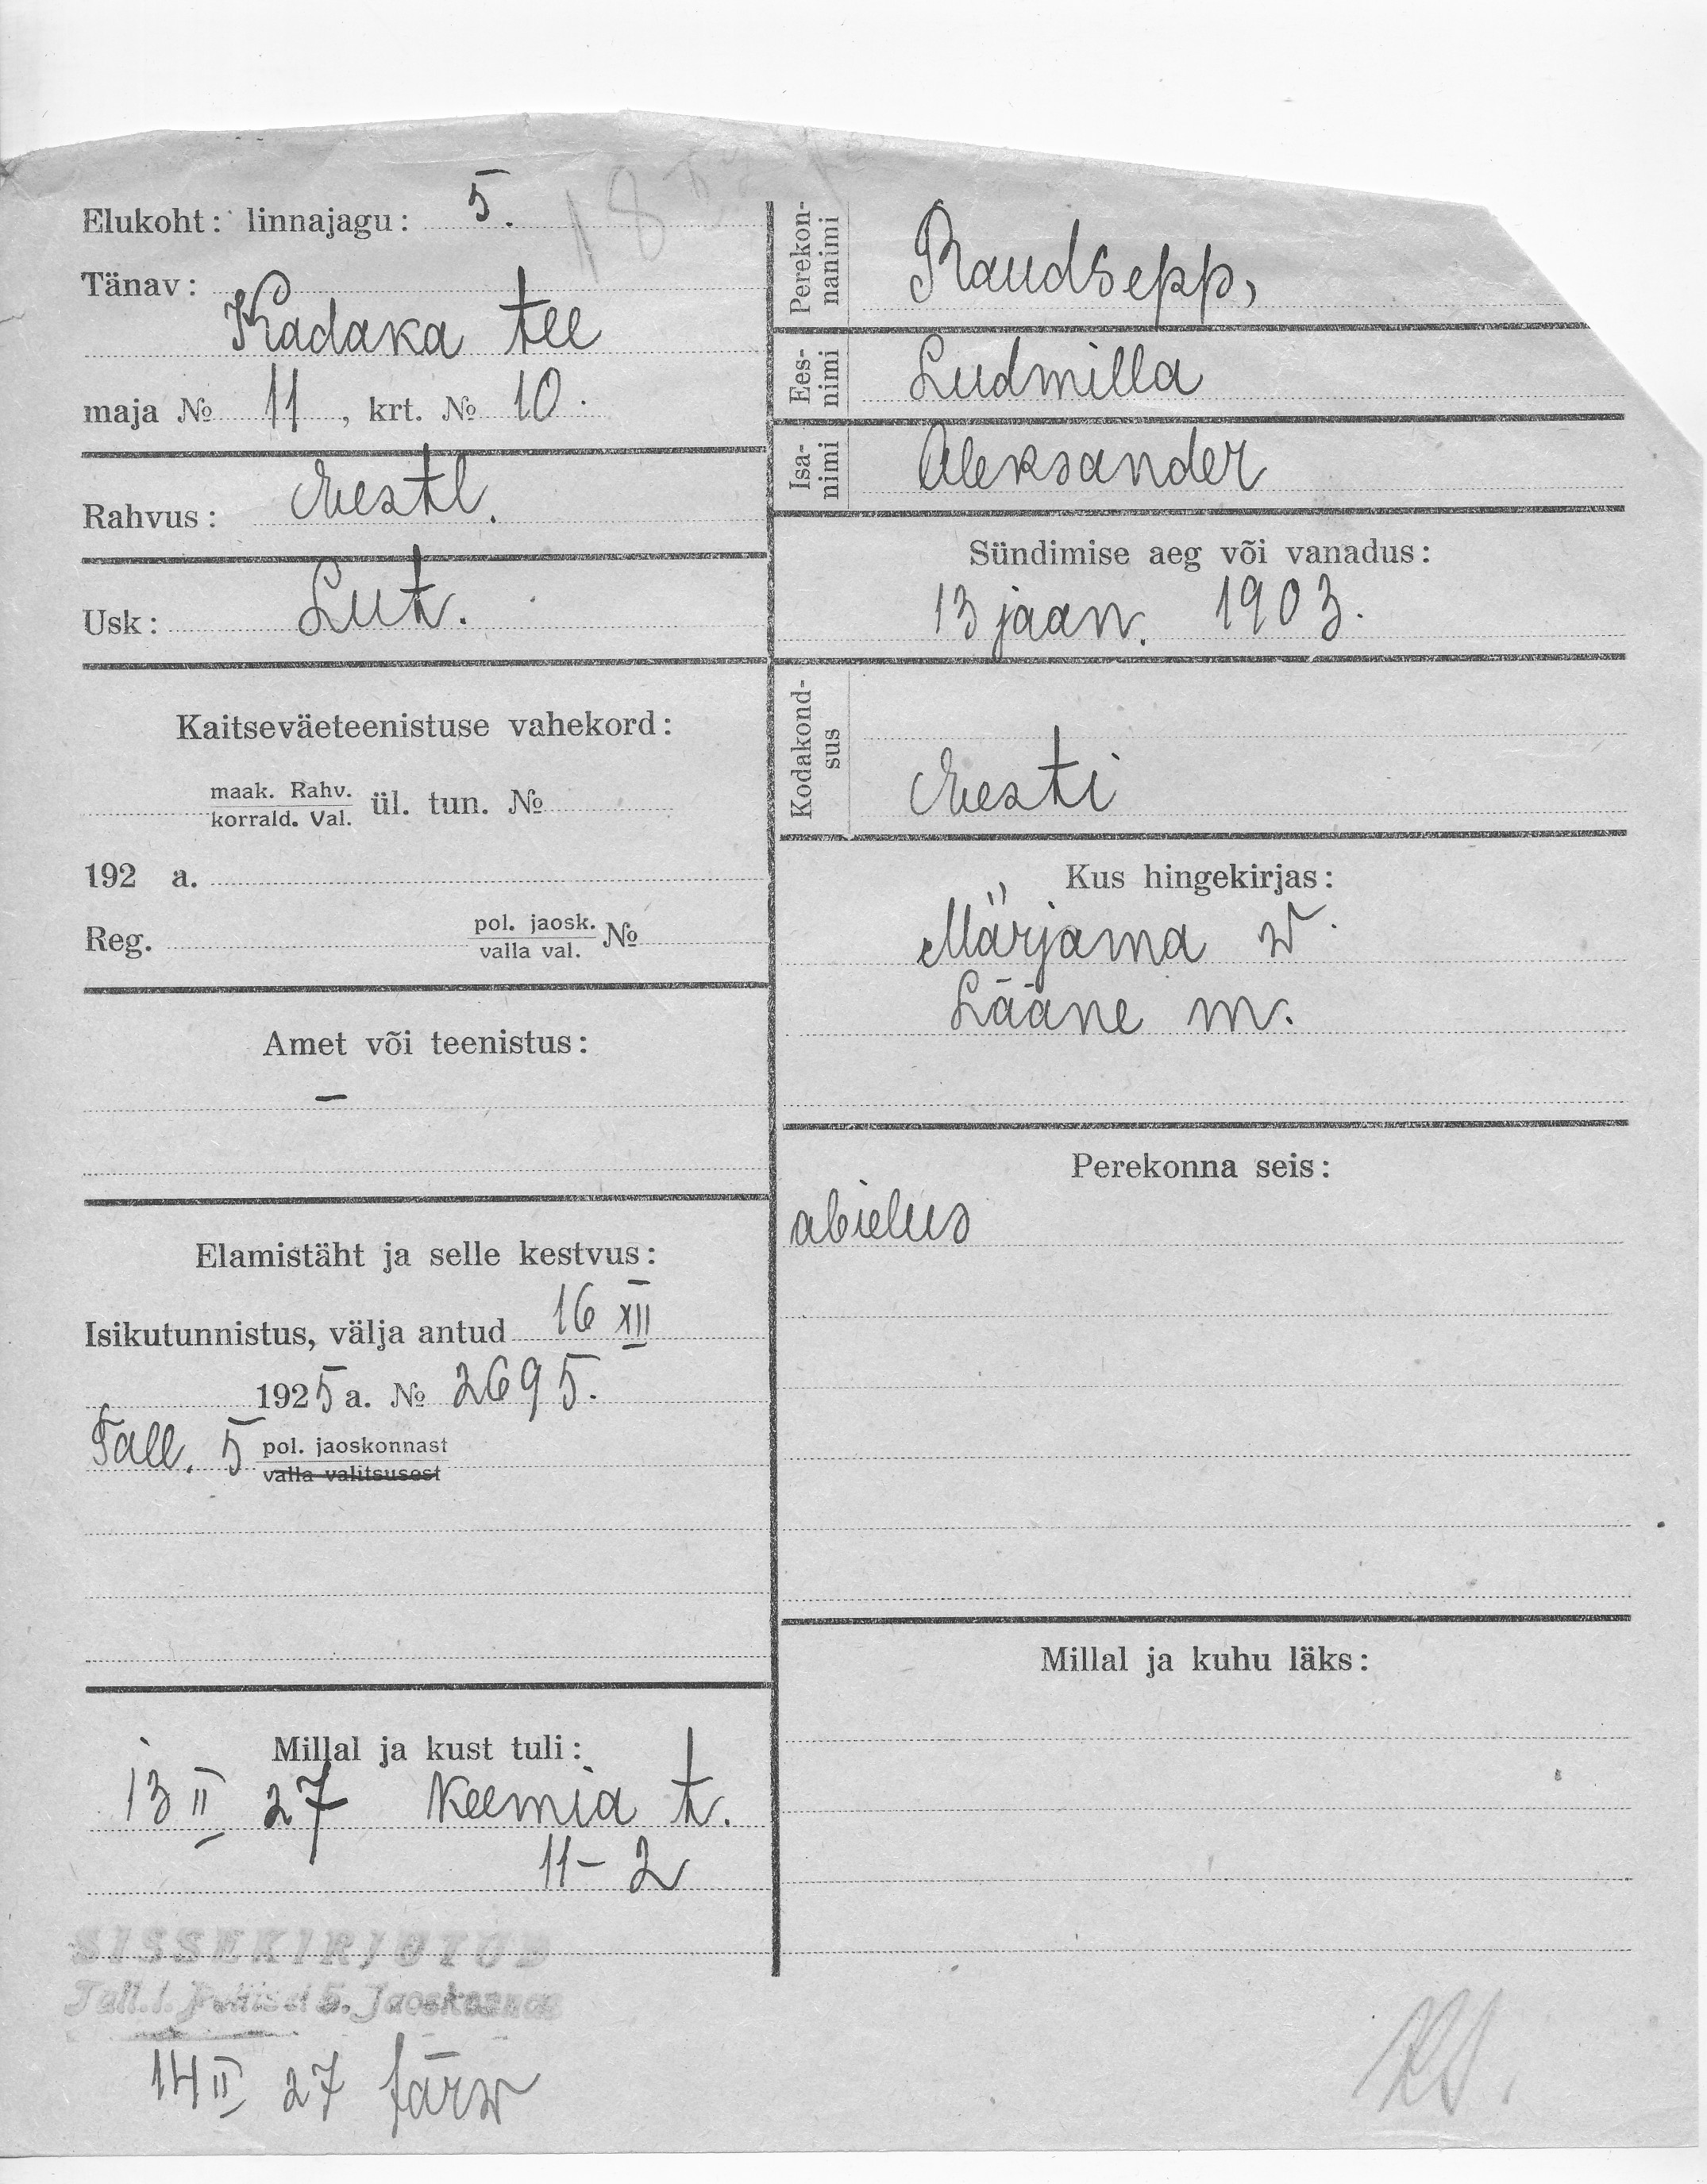 Elukoht: linnajagu: 5.
Tänav:
Kadaka tee
maja № 11, krt. № 10.
Rahvus: Eestl.
Usk: Lut.
Kaitseväeteenistuse vahekord:
maak. Rahv.
korrald. Val. ül. tun. №
192 a.
Reg. pol. jaosk.
valla val. №
Amet või teenistus:
–
Elamistäht ja selle kestvus:
Isikutunnistus, välja antud 16 XII
1925 a. № 2695.
Tall. 5 pol. jaoskonnast
valla valitsusest
Millal ja kust tuli:
13 II 27 Keemia t.
11-2
SISSEKIRJUTUD
Tall. l. Politsei 5. Jaoskonna
14 II 27
Perekon-
nanimi
Raudsepp,
Ees-
nimi
Ludmilla
Isa-
nimi
Aleksander
Sündimise aeg või vanadus:
13 jaan. 1903.
Kodakond-
sus
Eesti
Kus hingekirjas:
Märjama w
Lääne m.
Perekonna seis:
abielus
Millal ja kuhu läks: